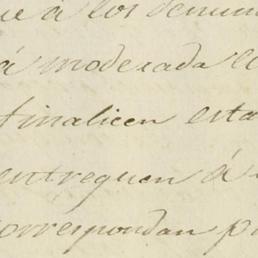 á los denun
á moderada
finalicen esta
entreguen á
correspondan p